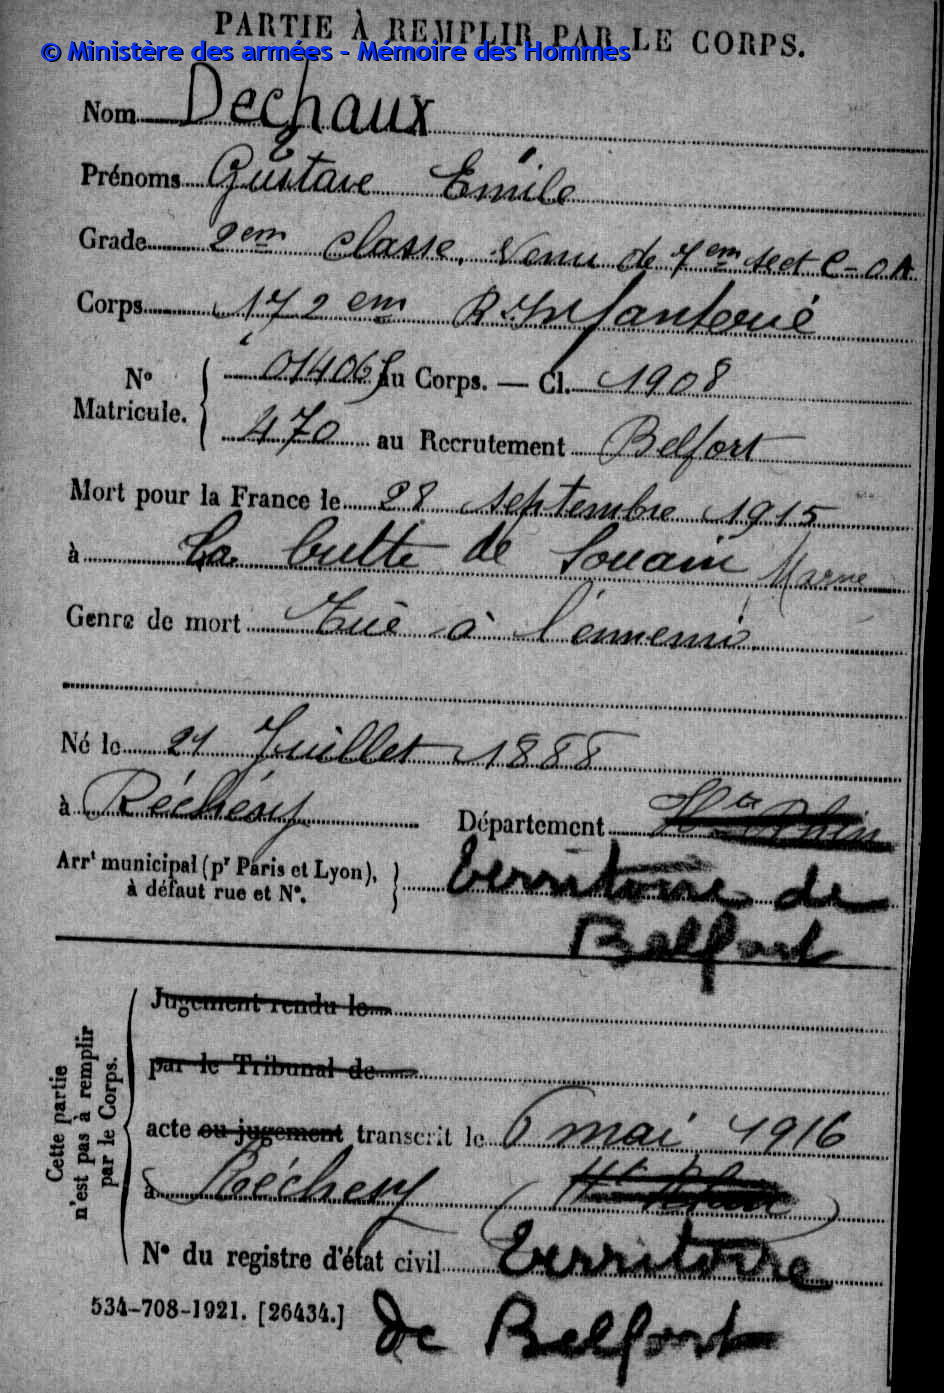 PARTIE À REMPLIR PAR LE CORPS.
© Ministère des armées - Mémoire des Hommes
Nom Dechaux
Prénoms Gustave Emile
Grade 2em classe, venu de 7em sect C-OA
Corps 172 em R. Infanterié
No Matricule. 01406 au Corps. — Cl. 1908
470 au Recrutement Belfort
Mort pour la France le 28 septembre 1915
à La butte de Souain Marne
Genre de mort Tué à l'ennemi
Né le 21 Juillet 1888
à Réchésy Département Ht Rhin
Arrt municipal (pr Paris et Lyon), à défaut rue et No. Territoire de
Belfort
Cette partie n'est pas à remplir par le Corps.
Jugement rendu le
par le Tribunal de
acte ou jugement transcrit le 6 mai 1916
à Réchésy (Ht Rhin)
No du registre d'état civil Territoire
534-708-1921. [26434.] de Belfort